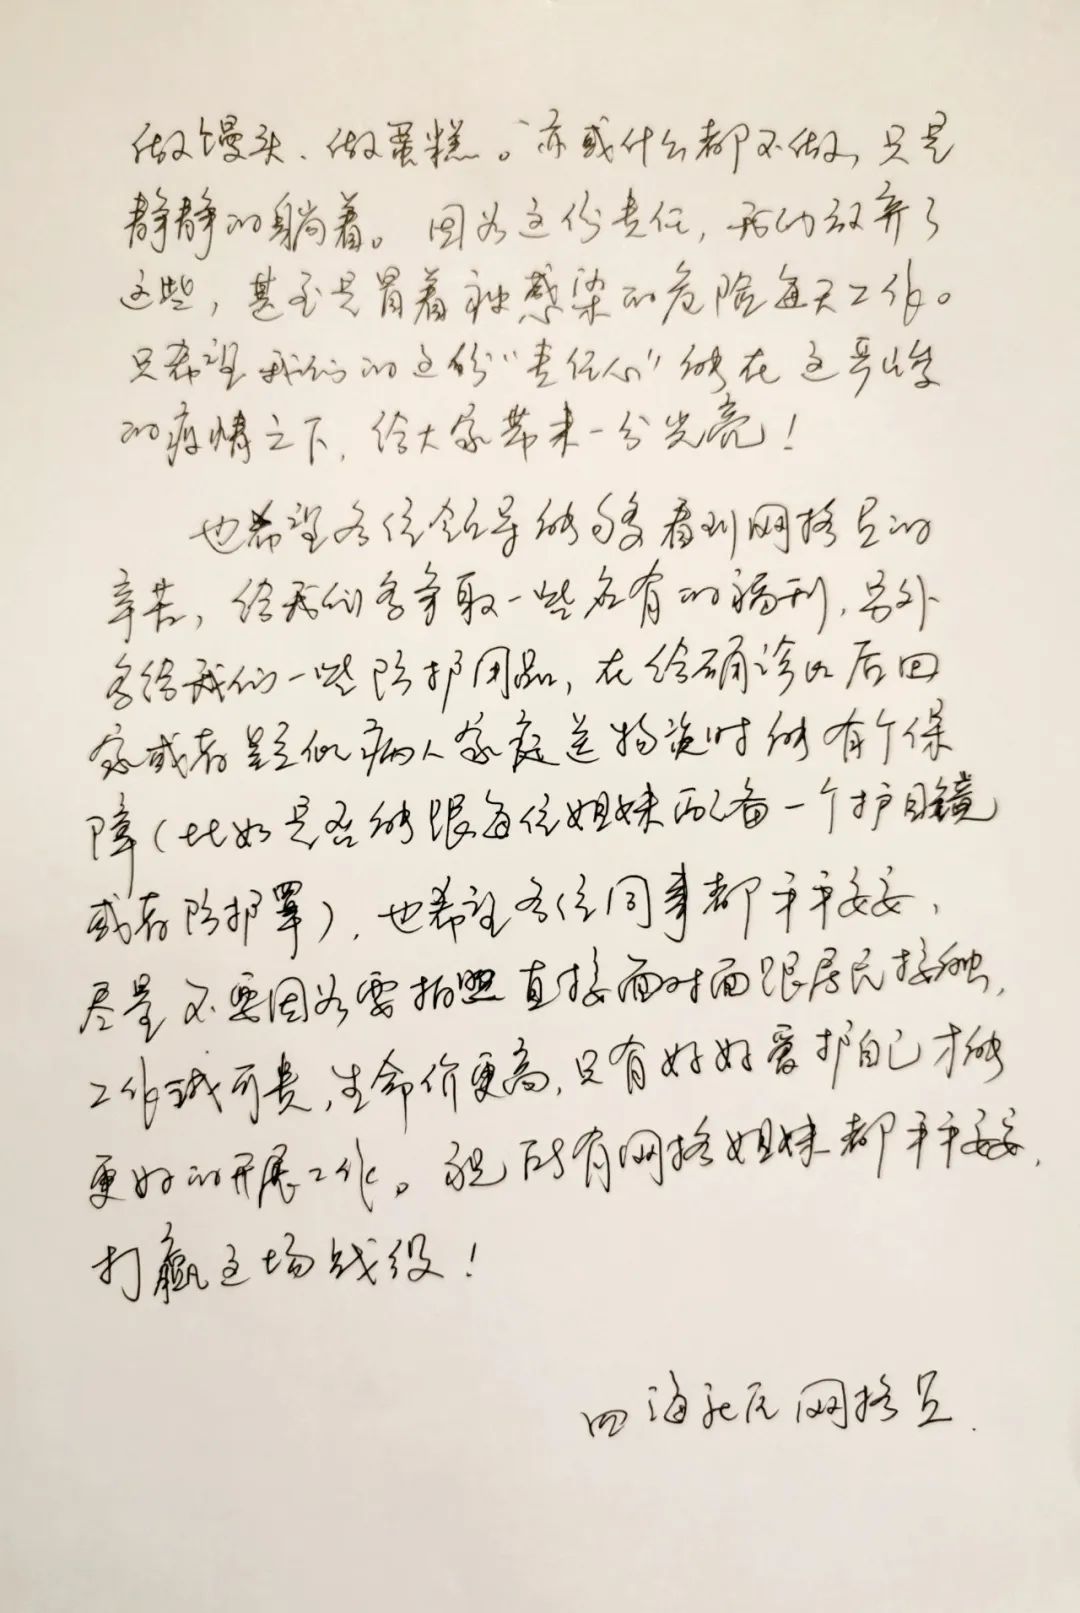 做馒头、做蛋糕。亦或什么都不做，只是
静静的躺着。因为这份责任，我们放弃了
这些，甚至是冒着被感染的危险每天工作。
只希望我们的这份“责任心”能在这严峻
的疫情之下，给大家带来一分光亮！
也希望各位领导能够看到网格员的
辛苦，给我们多争取一些应有的福利，另外
多给我们一些防护用品，在给确诊以后回
家或者疑似病人家庭送物资时能有个保
障（比如是否能跟每位姐妹配备一个护目镜
或者防护罩），也希望各位同事都平平安安，
尽量不要因为要拍照直接面对面跟居民接触，
工作诚可贵，生命价更高，只有好好爱护自己才能
更好的开展工作。祝所有网格姐妹都平平安安，
打赢这场战役！
四海社区网格员.